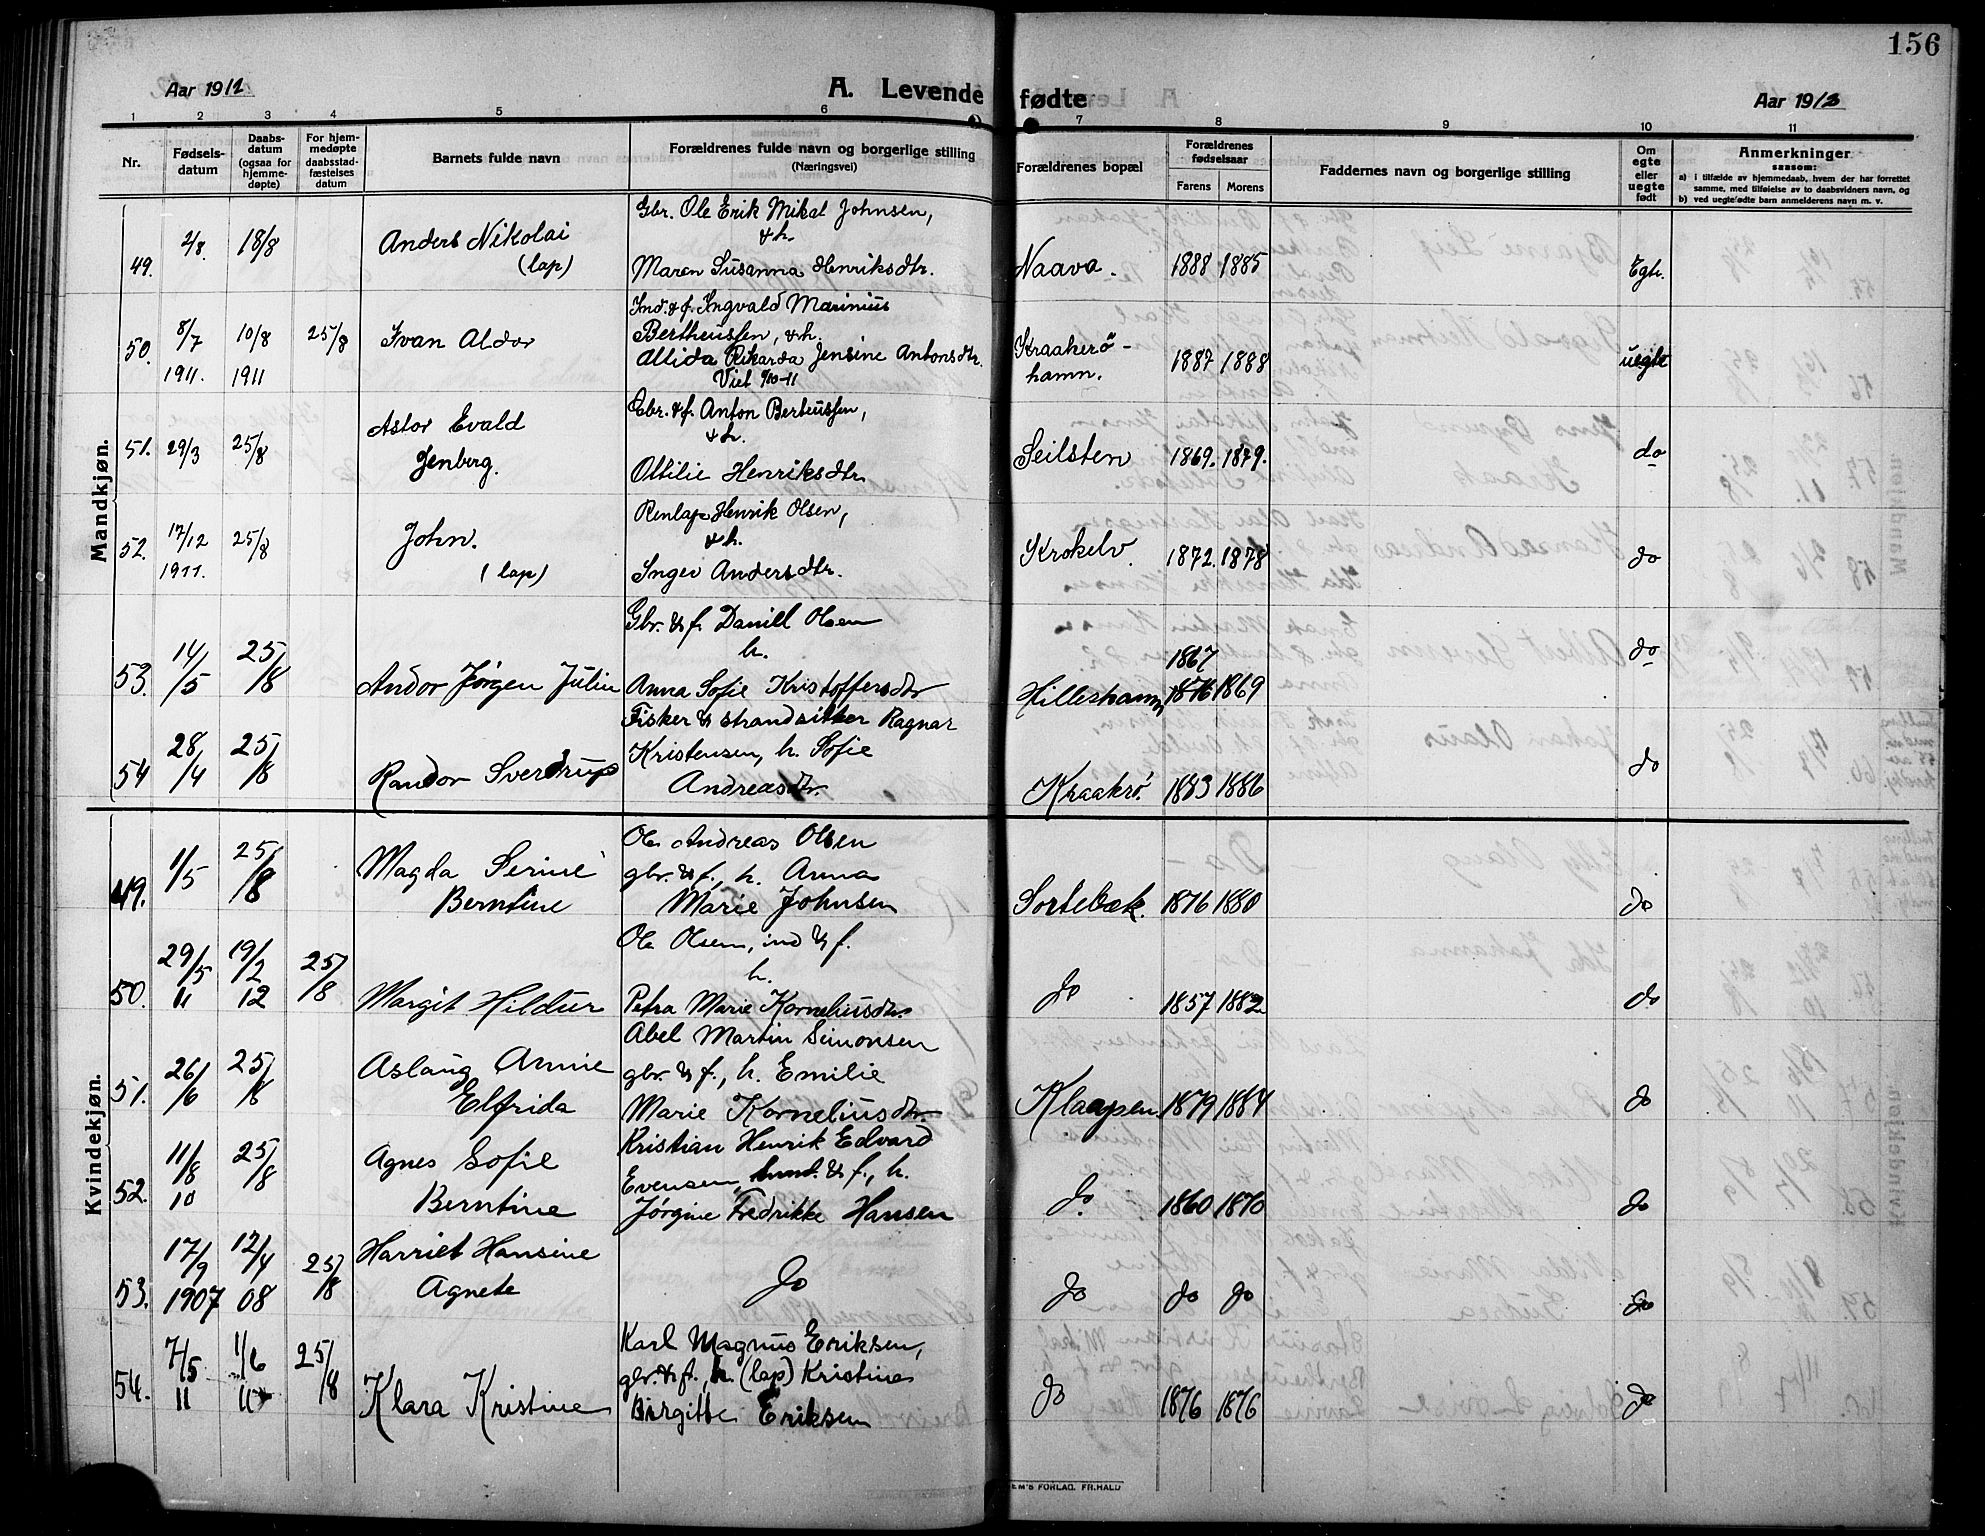 156
Aar 1912
A. Levende fødte
Aar 1913
1 2 3 4 5 6 7 8 9 10 11
Nr.
Fødsels-
datum
Daabs-
datum
(ogsaa for
hjemme-
døpte)
For hjem-
medøpte
daabsstad-
fæstelses
datum
Barnets fulde navn
Forældrenes fulde navn og borgerlige stilling
(Næringsvei)
Forældrenes bopæl
Forældrenes
fødselsaar
Farens Morens
Faddernes navn og borgerlige stilling
Om
egte
eller
uegte
født
Anmerkninger
saasom:
a) i tilfælde av hjemmedaab, hvem der har forrettet
samme, med tilføielse av to daabsvidners navn, og
b) ved uegtefødte barn anmelderens navn m. v.
Mandkjøn.
Gbr. Ole Erik Mikal Johnsen,
49. 2/8. 18/8 Anders Nikolai & h.
(lap) Maren Susanna Henriksdtr. Naava. 1888 1885 Egte.
Ind. & f. Ingvald Marinius
50. 8/7 10/8 25/8 Ivan Aldor Bertheussen, & h.
1911. 1911 Allida Rikarda Jensine Antonsdtr. Kraakerö-
hamn. 1887 1888 uegte
Viet 9/10-11
Gbr. & f. Anton Berteussen,
51. 29/3 25/8 Astor Evald & h.
Jenberg. Ottilie Henriksdtr. Seilsten 1869. 1879. do
Renlap Henrik Olsen,
52. 17/12 25/8 John. & h.
1911. (lap) Inger Andersdtr. Krokelv. 1872. 1878 do
Gbr. & f. Daniel Olsen
h.
53. 14/5 25/8 Andor Jørgen Julin Anna Sofie Kristoffersdtr Hilleshamn 1867 1876 1869 do
Fisker & strandsitter Ragnar
Kristensen, h. Sofie
54 28/4 25/8 Randor Sverdrup Andreasdtr. Kraakrö. 1883 1886 do
Kvindekjøn.
Ole Andreas Olsen
49. 1/5 25/8 Magda Serine gbr. & f., h. Anna
Berntine Marie Johnsen Sortebæk. 1876 1880 do
Ole Olsen, ind & f.
h.
50. 29/5 11 19/2 12 25/8 Margit Hildur Petra Marie Korneliusdtr. do 1857 1882 do
Abel Martin Simonsen
51. 26/6 25/8 Aslaug Annie gbr. & f., h. Emilie
Elfrida Marie Korneliusdtr Klaapen 1879 1884 do
Kristian Henrik Edvard
52. 11/8 10 25/8 Agnes Sofie Evensen, & f., h.
Berntine Jørgine Fredrikke Hansen do. 1860 1870 do
53. 17/9 1907 12/4 08 25/8 Harriet Hansine
Agnete do do do do do
Karl Magnus Eriksen,
54. 7/5 11 1/6 11 25/8 gbr. & f., h. (lap) Kristine
Klara Kristine Birgitte Eriksen do 1876 1876 do
EM'S FORLAG. FR.HALD